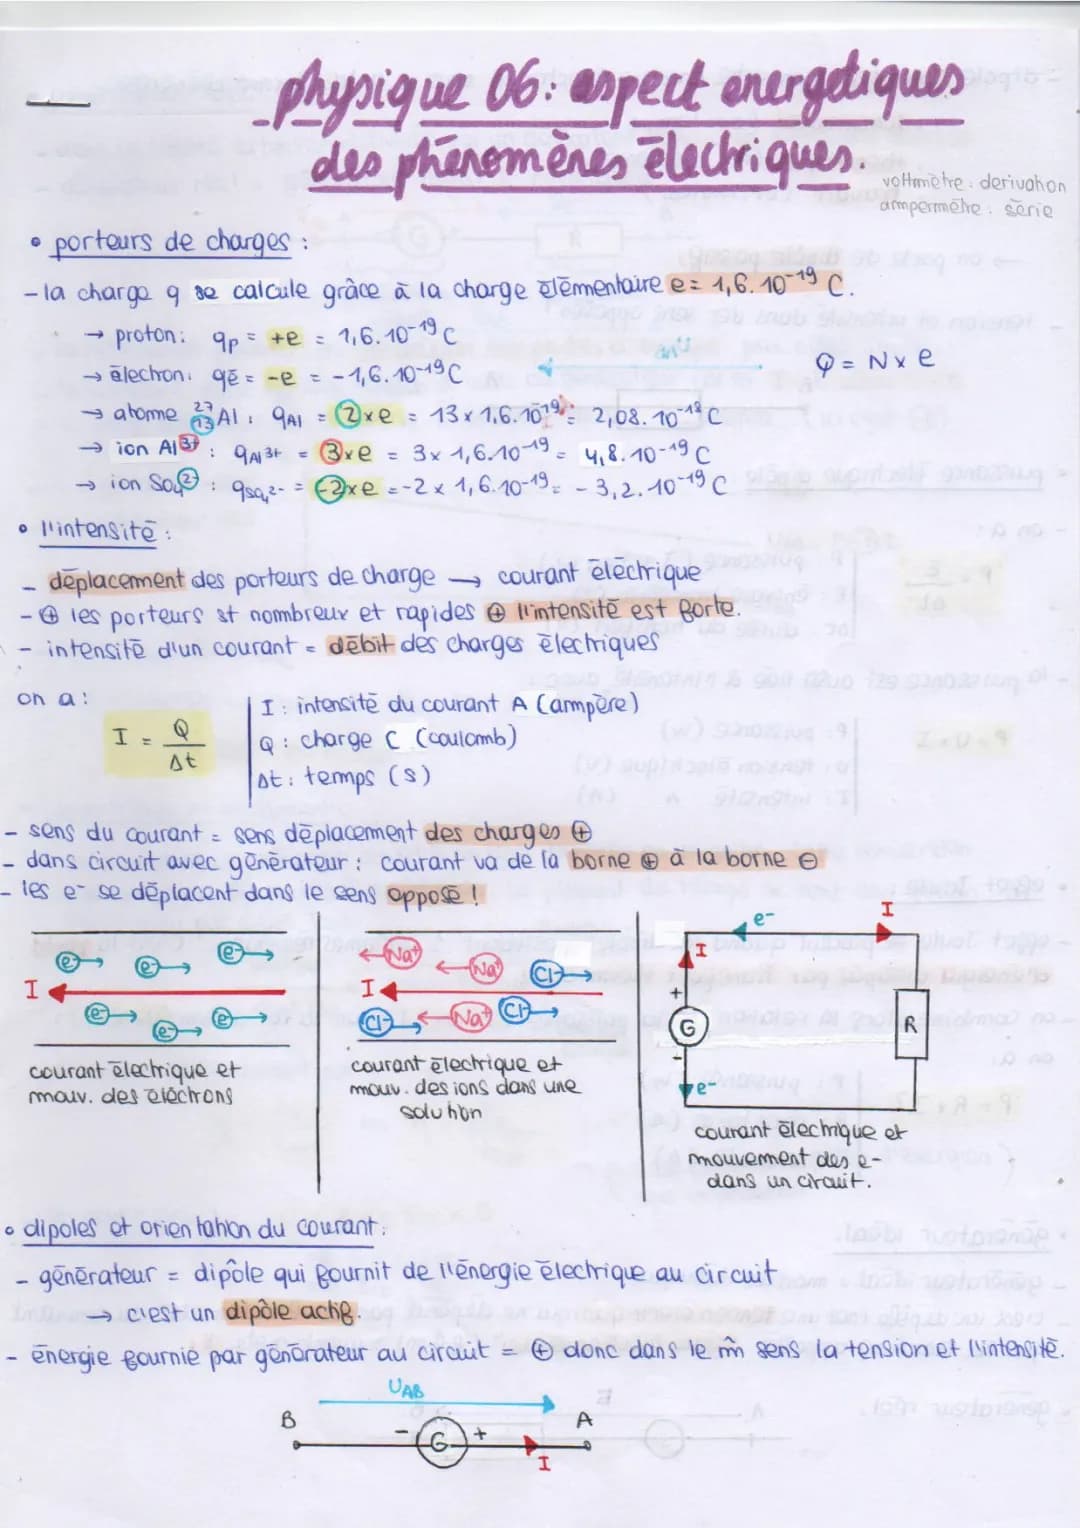 physique 06: aspect energetiques
des phénomènes électriques.
voltmètre : derivation
ampermètre : série
• porteurs de charges :
- la charge q se calcule grâce à la charge élémentaire e = 1,6.10⁻¹⁹ C.
→ proton : qp = +e = 1,6.10⁻¹⁹ C
→ électron : qē = -e = -1,6.10⁻¹⁹ C
Q = N x e
→ atome ²⁷₁₃Al : qAl = Z x e = 13 x 1,6.10¹⁹ = 2,08.10⁻¹⁸ C
→ ion Al³⁺ : qAl³⁺ = 3 x e = 3 x 1,6.10⁻¹⁹ = 4,8.10⁻¹⁹ C
→ ion SO₄²⁻ : qSO₄²⁻ = -2 x e = -2 x 1,6.10⁻¹⁹ = -3,2.10⁻¹⁹ C
• l'intensité :
- déplacement des porteurs de charge → courant électrique
- ⊕ les porteurs st nombreux et rapides ⊕ l'intensité est forte.
- intensité d'un courant = débit des charges électriques
on a :
I = Q / Δt
I : intensité du courant A (ampère)
Q : charge C (coulomb)
Δt : temps (s)
- sens du courant = sens déplacement des charges ⊕
- dans circuit avec générateur : courant va de la borne ⊕ à la borne ⊖
- les e⁻ se déplacent dans le sens opposé !
e- e- e-
I
e- e- e-
courant électrique et
mouv. des éléctrons
Na+ Na+ Cl-
I
Cl- Na+ Cl-
courant électrique et
mouv. des ions dans une
solution
e- I
I
+
G R
-
e-
courant électrique et
mouvement des e-
dans un circuit.
• dipoles et orientation du courant :
- générateur = dipôle qui fournit de l'énergie électrique au circuit
→ c'est un dipôle actif.
- énergie fournie par générateur au circuit = ⊕ donc dans le m̂ sens la tension et l'intensité.
UAB
B - G + A
I